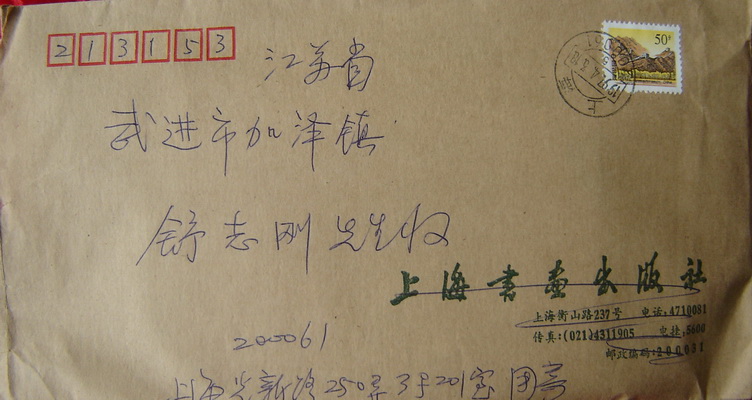 213153
江苏省
50分
1997.4.3
上海
武进市加泽镇
舒志刚先生收
上海书画出版社
上海衡山路237号 电话:4710081
传真:(021)4311905 电挂:5600
邮政编码:200031
200061
上海光新路250弄3号201室 周寄